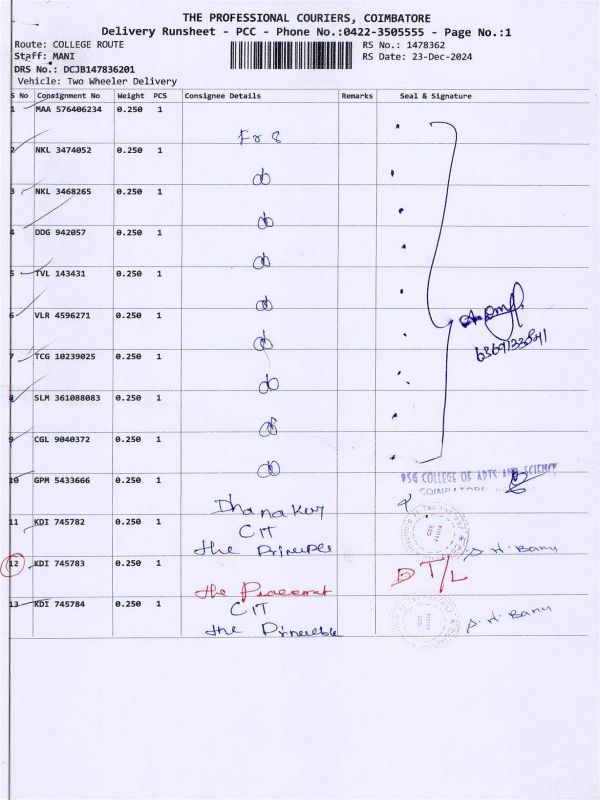 THE PROFESSIONAL COURIERS, COIMBATORE
Delivery Runsheet - PCC - Phone No.:0422-3505555 - Page No.:1
Route: COLLEGE ROUTE RS No.: 1478362
Staff: MANI RS Date: 23-Dec-2024
DRS No.: DCJB147836201
Vehicle: Two Wheeler Delivery
S No Consignment No Weight PCS Consignee Details Remarks Seal & Signature
1 MAA 576406234 0.250 1
2 NKL 3474052 0.250 1
3 NKL 3468265 0.250 1
4 DDG 942057 0.250 1
5 TVL 143431 0.250 1
6 VLR 4596271 0.250 1
7 TCG 10239025 0.250 1
8 SLM 361088083 0.250 1
9 CGL 9040372 0.250 1
PSG COLLEGE OF ARTS AND SCIENCE
COIMBATORE
10 GPM 5433666 0.250 1
11 KDI 745782 0.250 1
CIT
the
12 KDI 745783 0.250 1
the
D T/L
13 KDI 745784 0.250 1
CIT
the